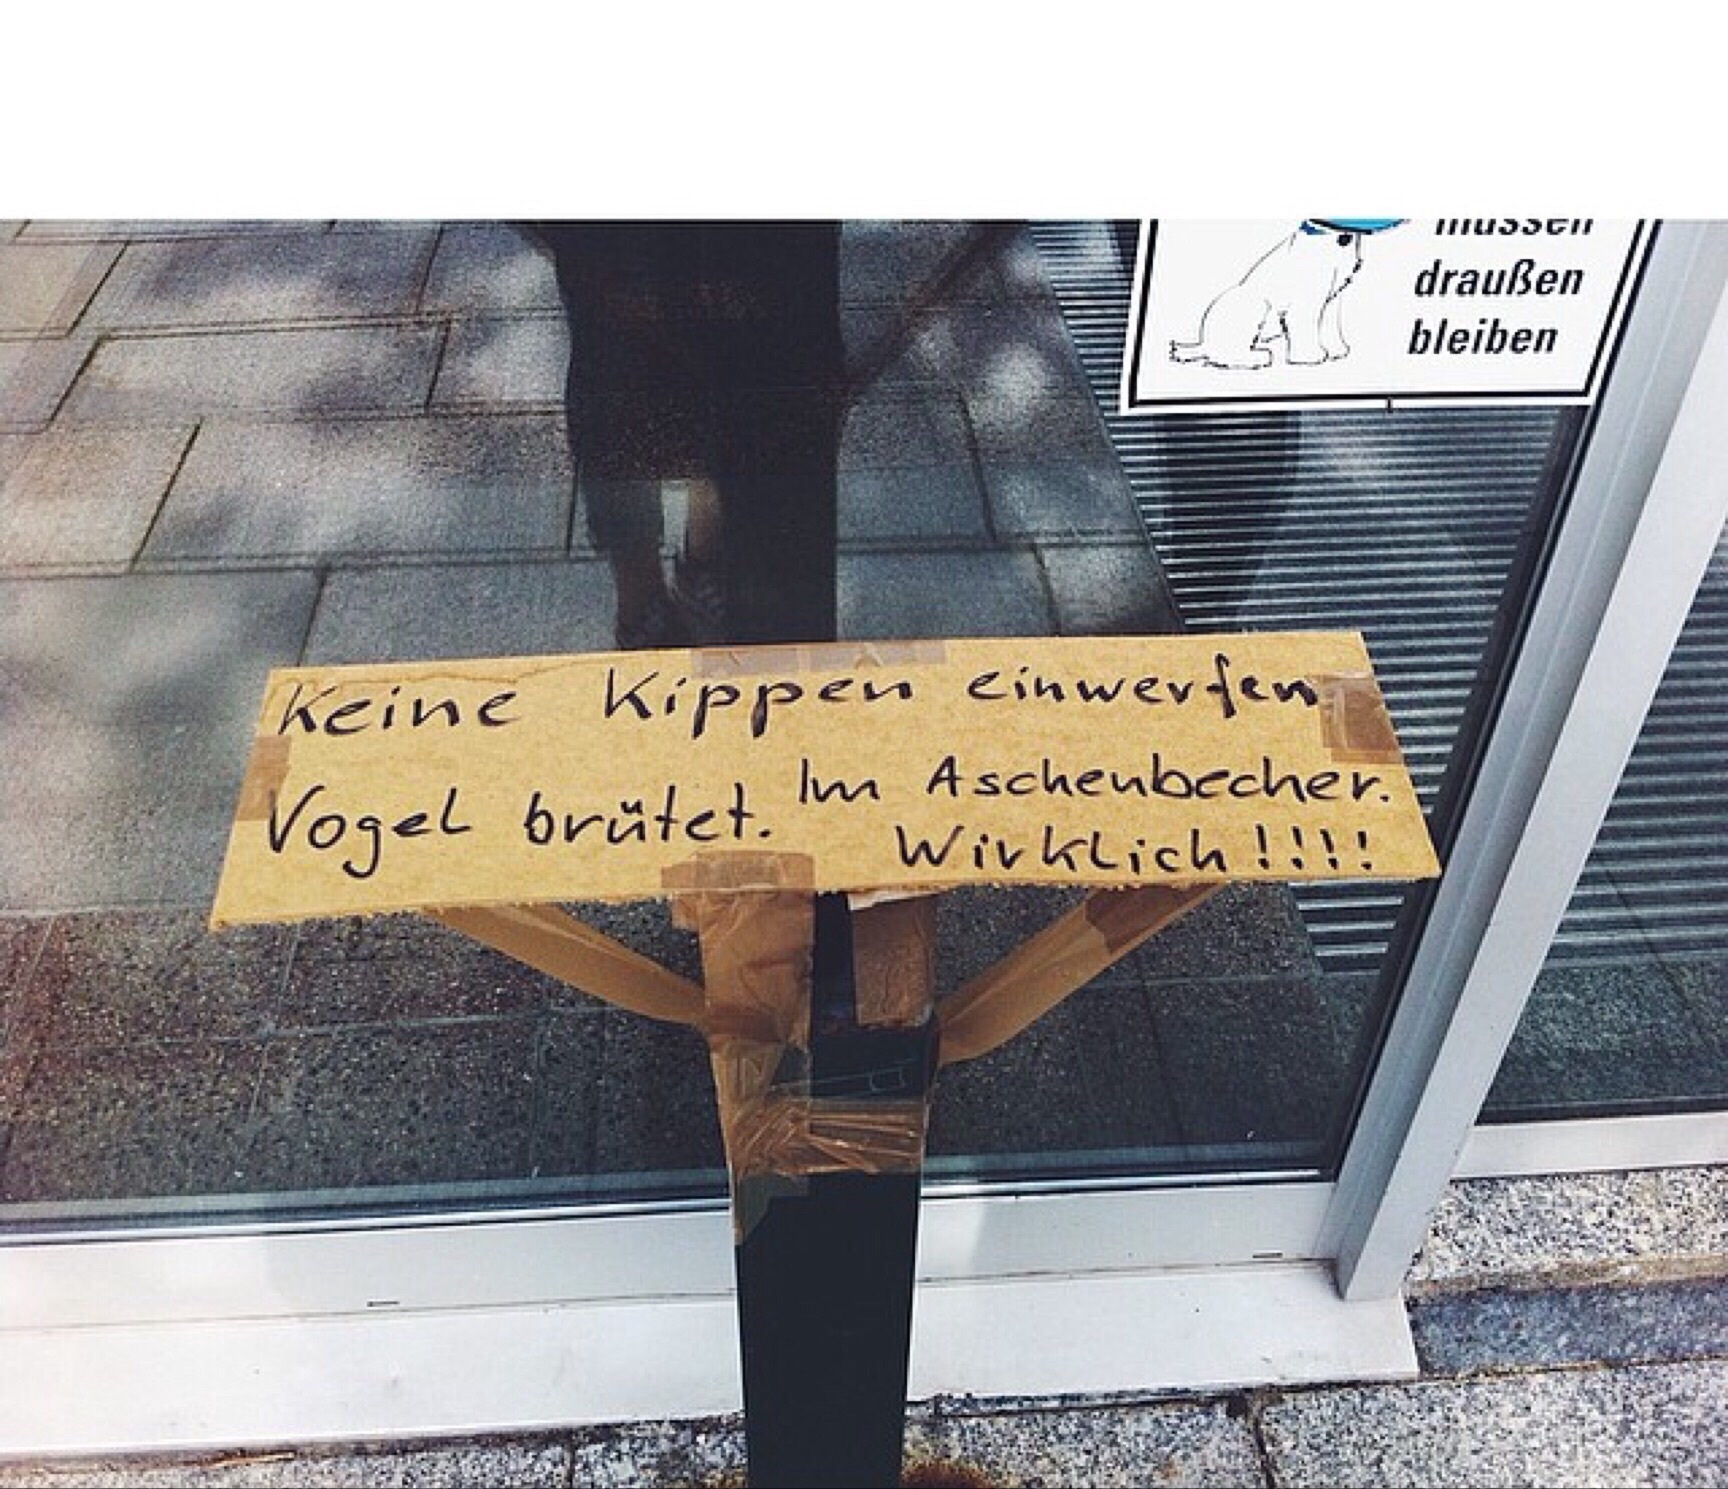 müssen
draußen
bleiben
Keine Kippen einwerfen
Vogel brütet. Im Aschenbecher.
Wirklich!!!!